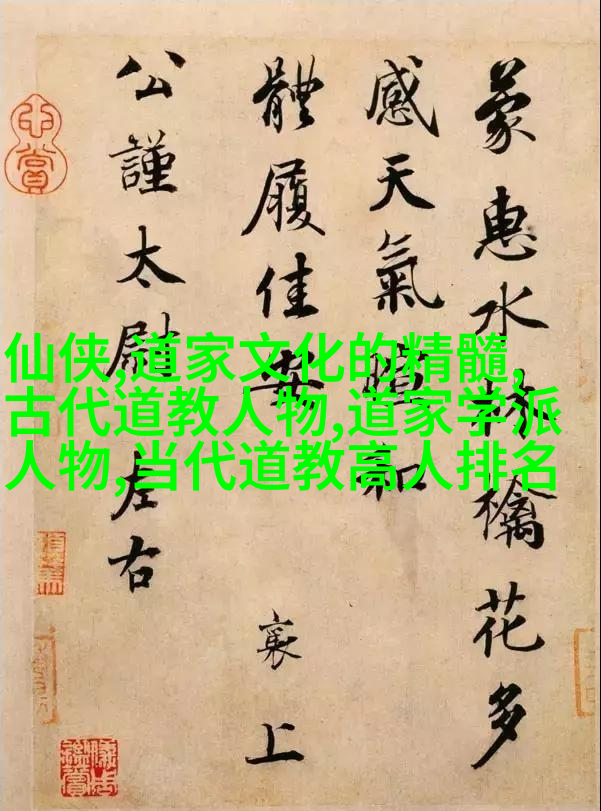 仙侠,道家文化的精髓,
古代道教人物,道家学派
人物,当代道教高人排名
蒙惠水林檎花多
感天氣暄和
體履佳安
襄上
公謹太尉左右